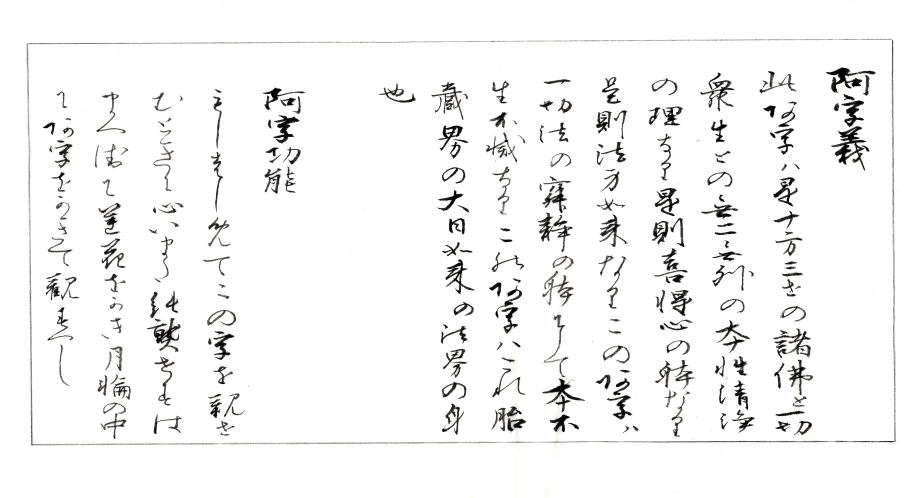 阿字義
此阿字ハ是十方三世の諸佛と一切
衆生との無二無別の本性清浄
の理なり是則菩提心の躰なり
是則法身如来なりこの阿字ハ
一切法の寂静の躰にして本不
生不滅なりこの阿字ハこれ胎
蔵界の大日如来の法界の身
也
阿字功能
もしはしめてこの字を観せ
むときに心いまた純熟せすは
まへに
て蓮花をかき月輪の中
に阿字をかきて観すへし